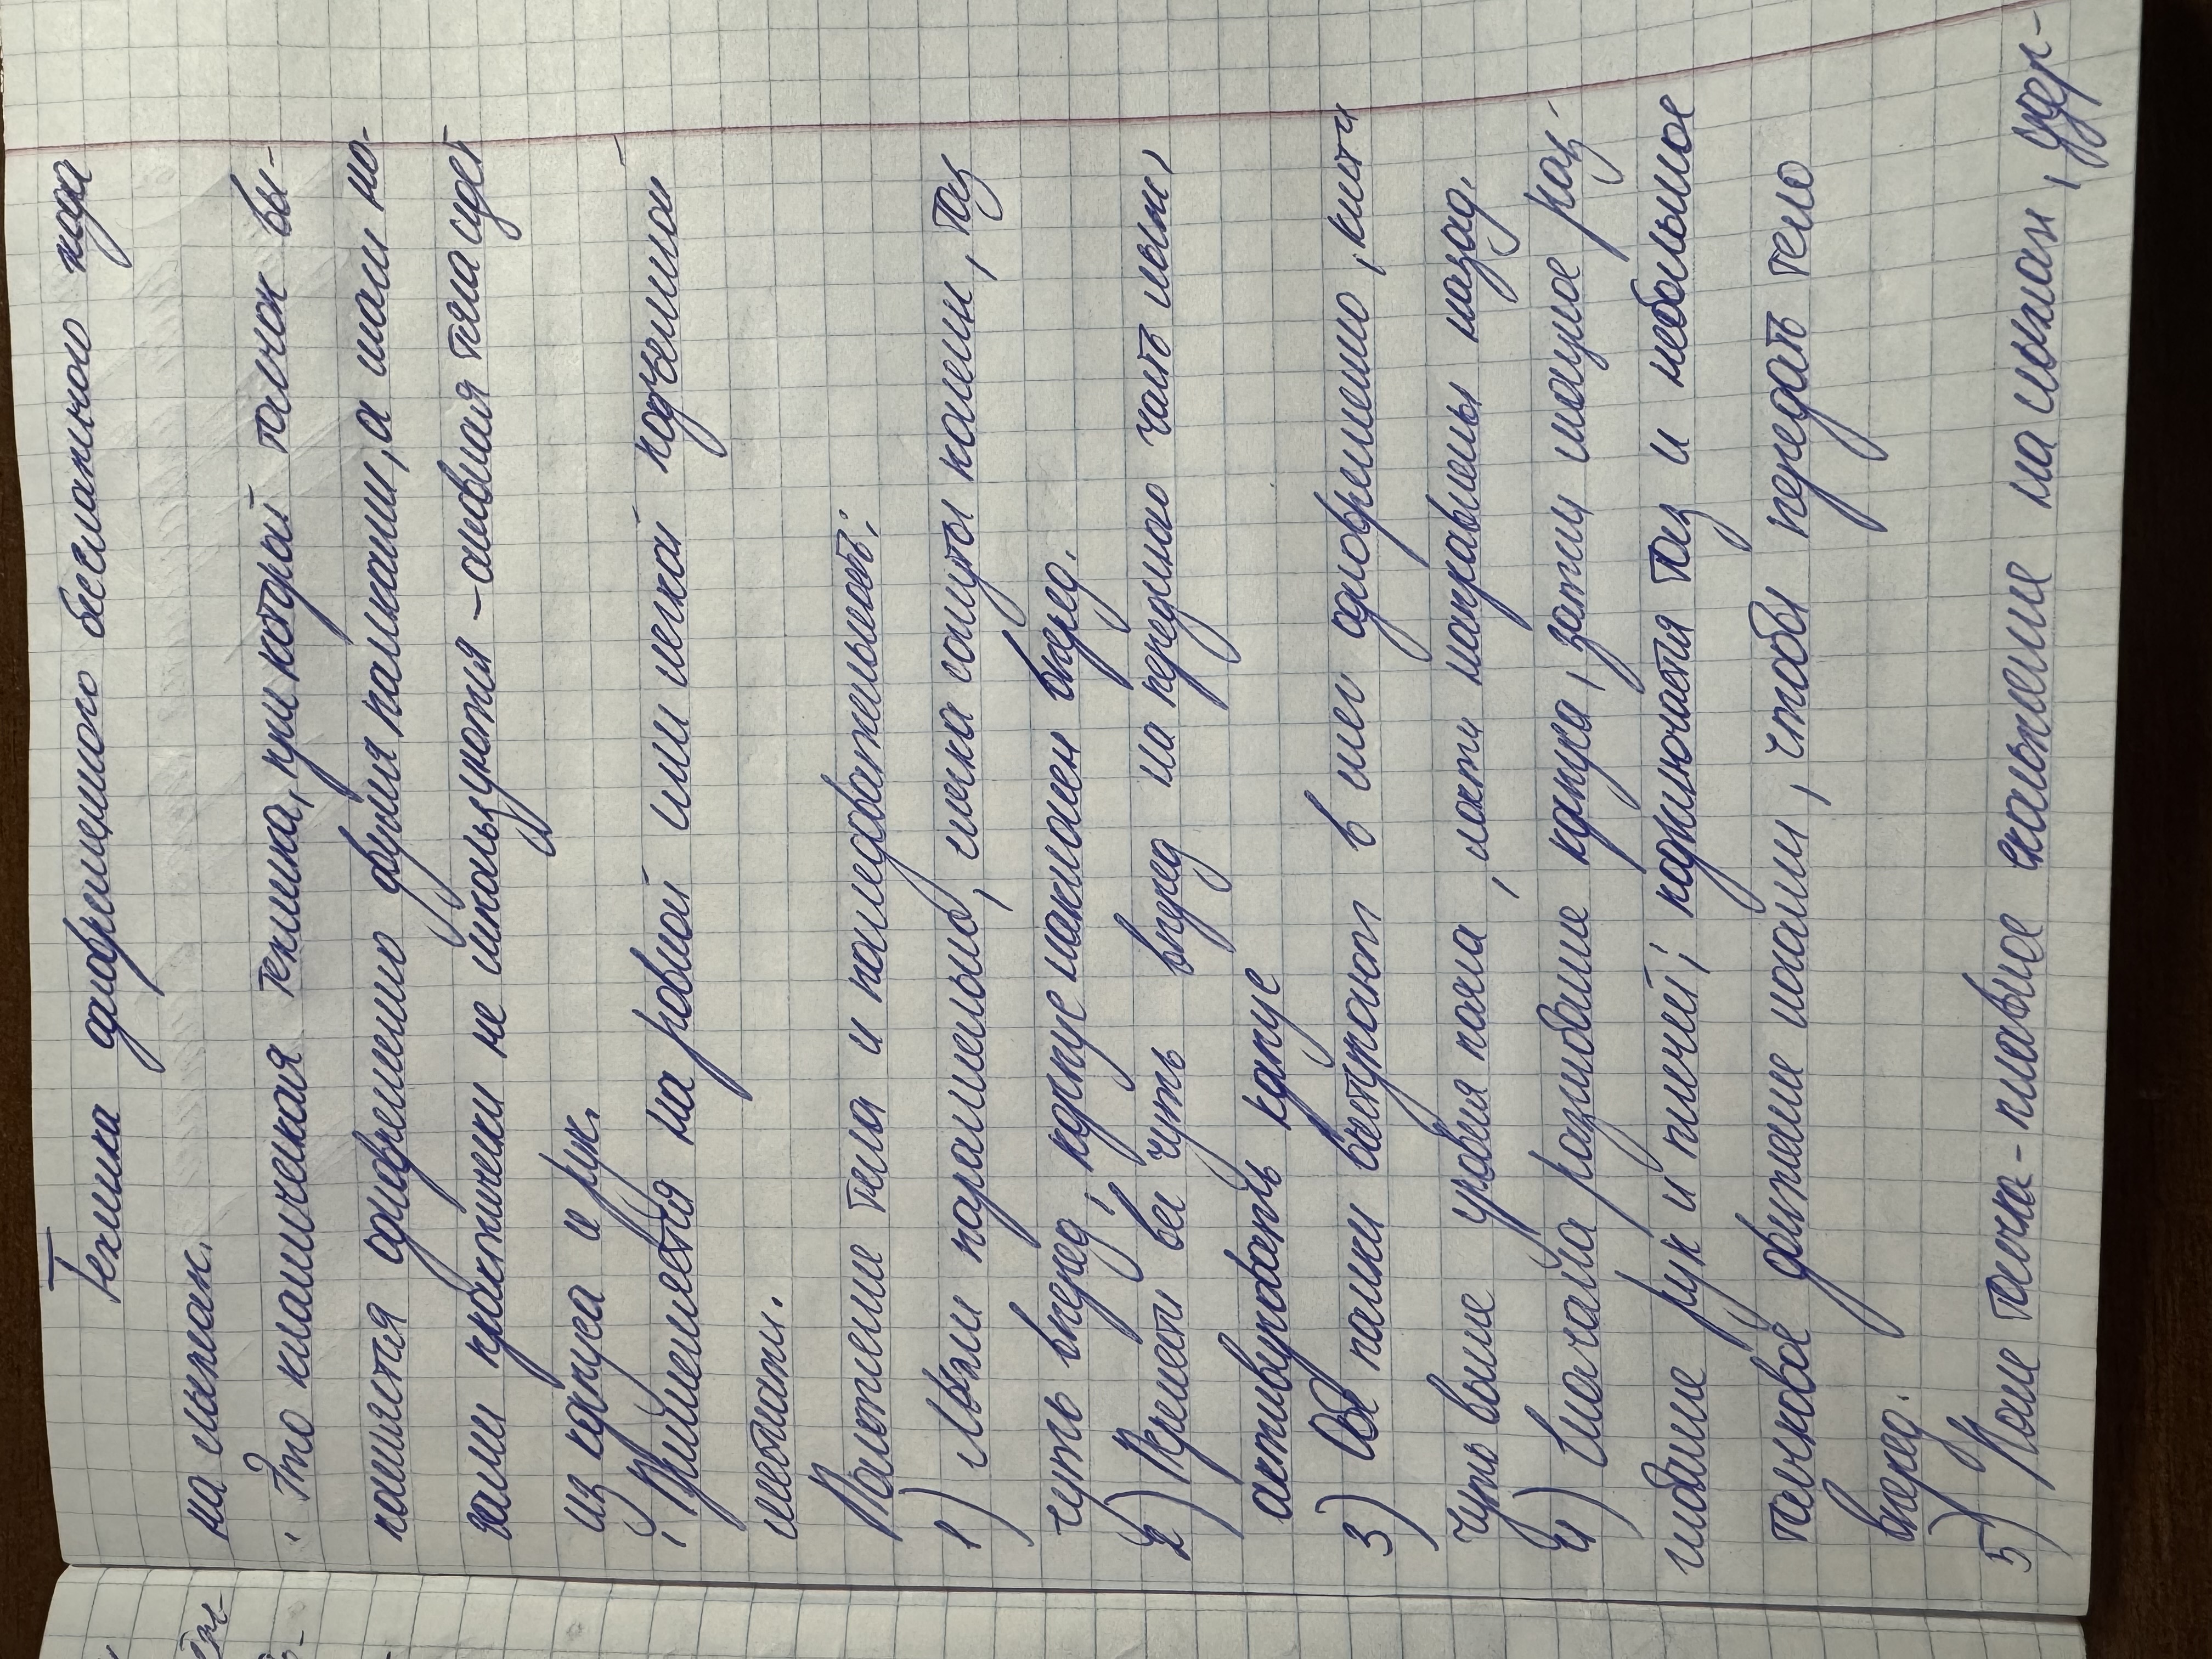 Техника одновременного бесшажного хода
на лыжах.
· Это классическая техника, при которой толчок вы-
полняется одновременно двумя палками, а шаги но-
гами практически не используются – основная тяга идет
из корпуса и рук.
· Применяется на ровной или легкой подъемной
местности.
Положение тела и последовательность:
1) Лыжи параллельно, слегка согнуты колени, таз
чуть вперед; корпус наклонен вперед.
2) Перенести вес чуть вперед на переднюю часть лыж,
активировать корпус
3) Обе палки выступают в снег одновременно, кисти
чуть выше уровня пояса, локти направлены назад.
4) Сначала разгибание корпуса, затем мощное раз-
гибание рук и плечей; подключается таз и небольшое
толчковое движение ногами, чтобы передать тело
вперед.
5) После толчка – плавное скольжение на лыжах, удер-